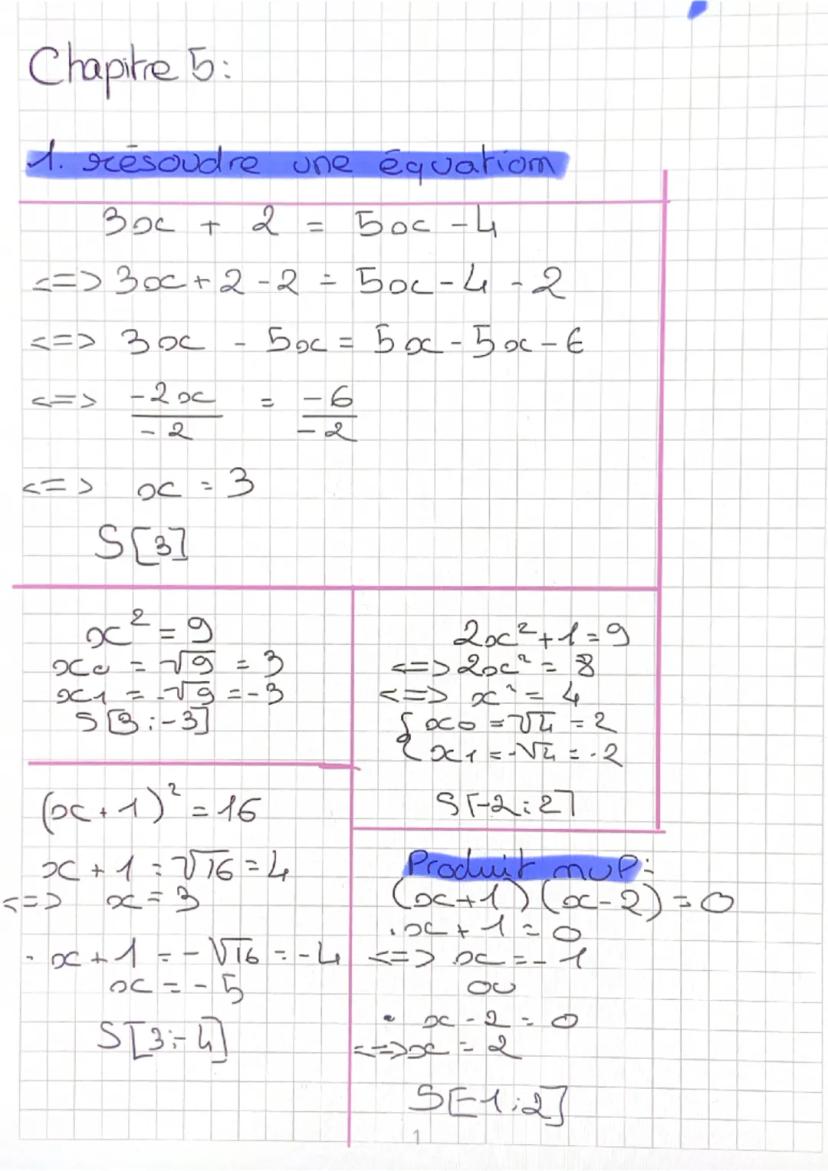 Chapitre 5:
1. résoudre une équation
3x + 2 = 5x - 4
<=> 3x + 2 - 2 = 5x - 4 - 2
<=> 3x - 5x = 5x - 5x - 6
<=> -2x/-2 = -6/-2
<=> x = 3
S[3]
x² = 9
x0 = √9 = 3
x1 = -√9 = -3
S[3;-3]
2x² + 1 = 9
<=> 2x² = 8
<=> x² = 4
{ x0 = √4 = 2
{ x1 = -√4 = -2
S[-2;2]
(x+1)² = 16
x + 1 = √16 = 4
<=> x = 3
· x + 1 = -√16 = -4
x = -5
S[3;-4]
Produit nul:
(x+1)(x-2) = 0
· x + 1 = 0
<=> x = -1
ou
· x - 2 = 0
<=> x = 2
S[-1;2]
1